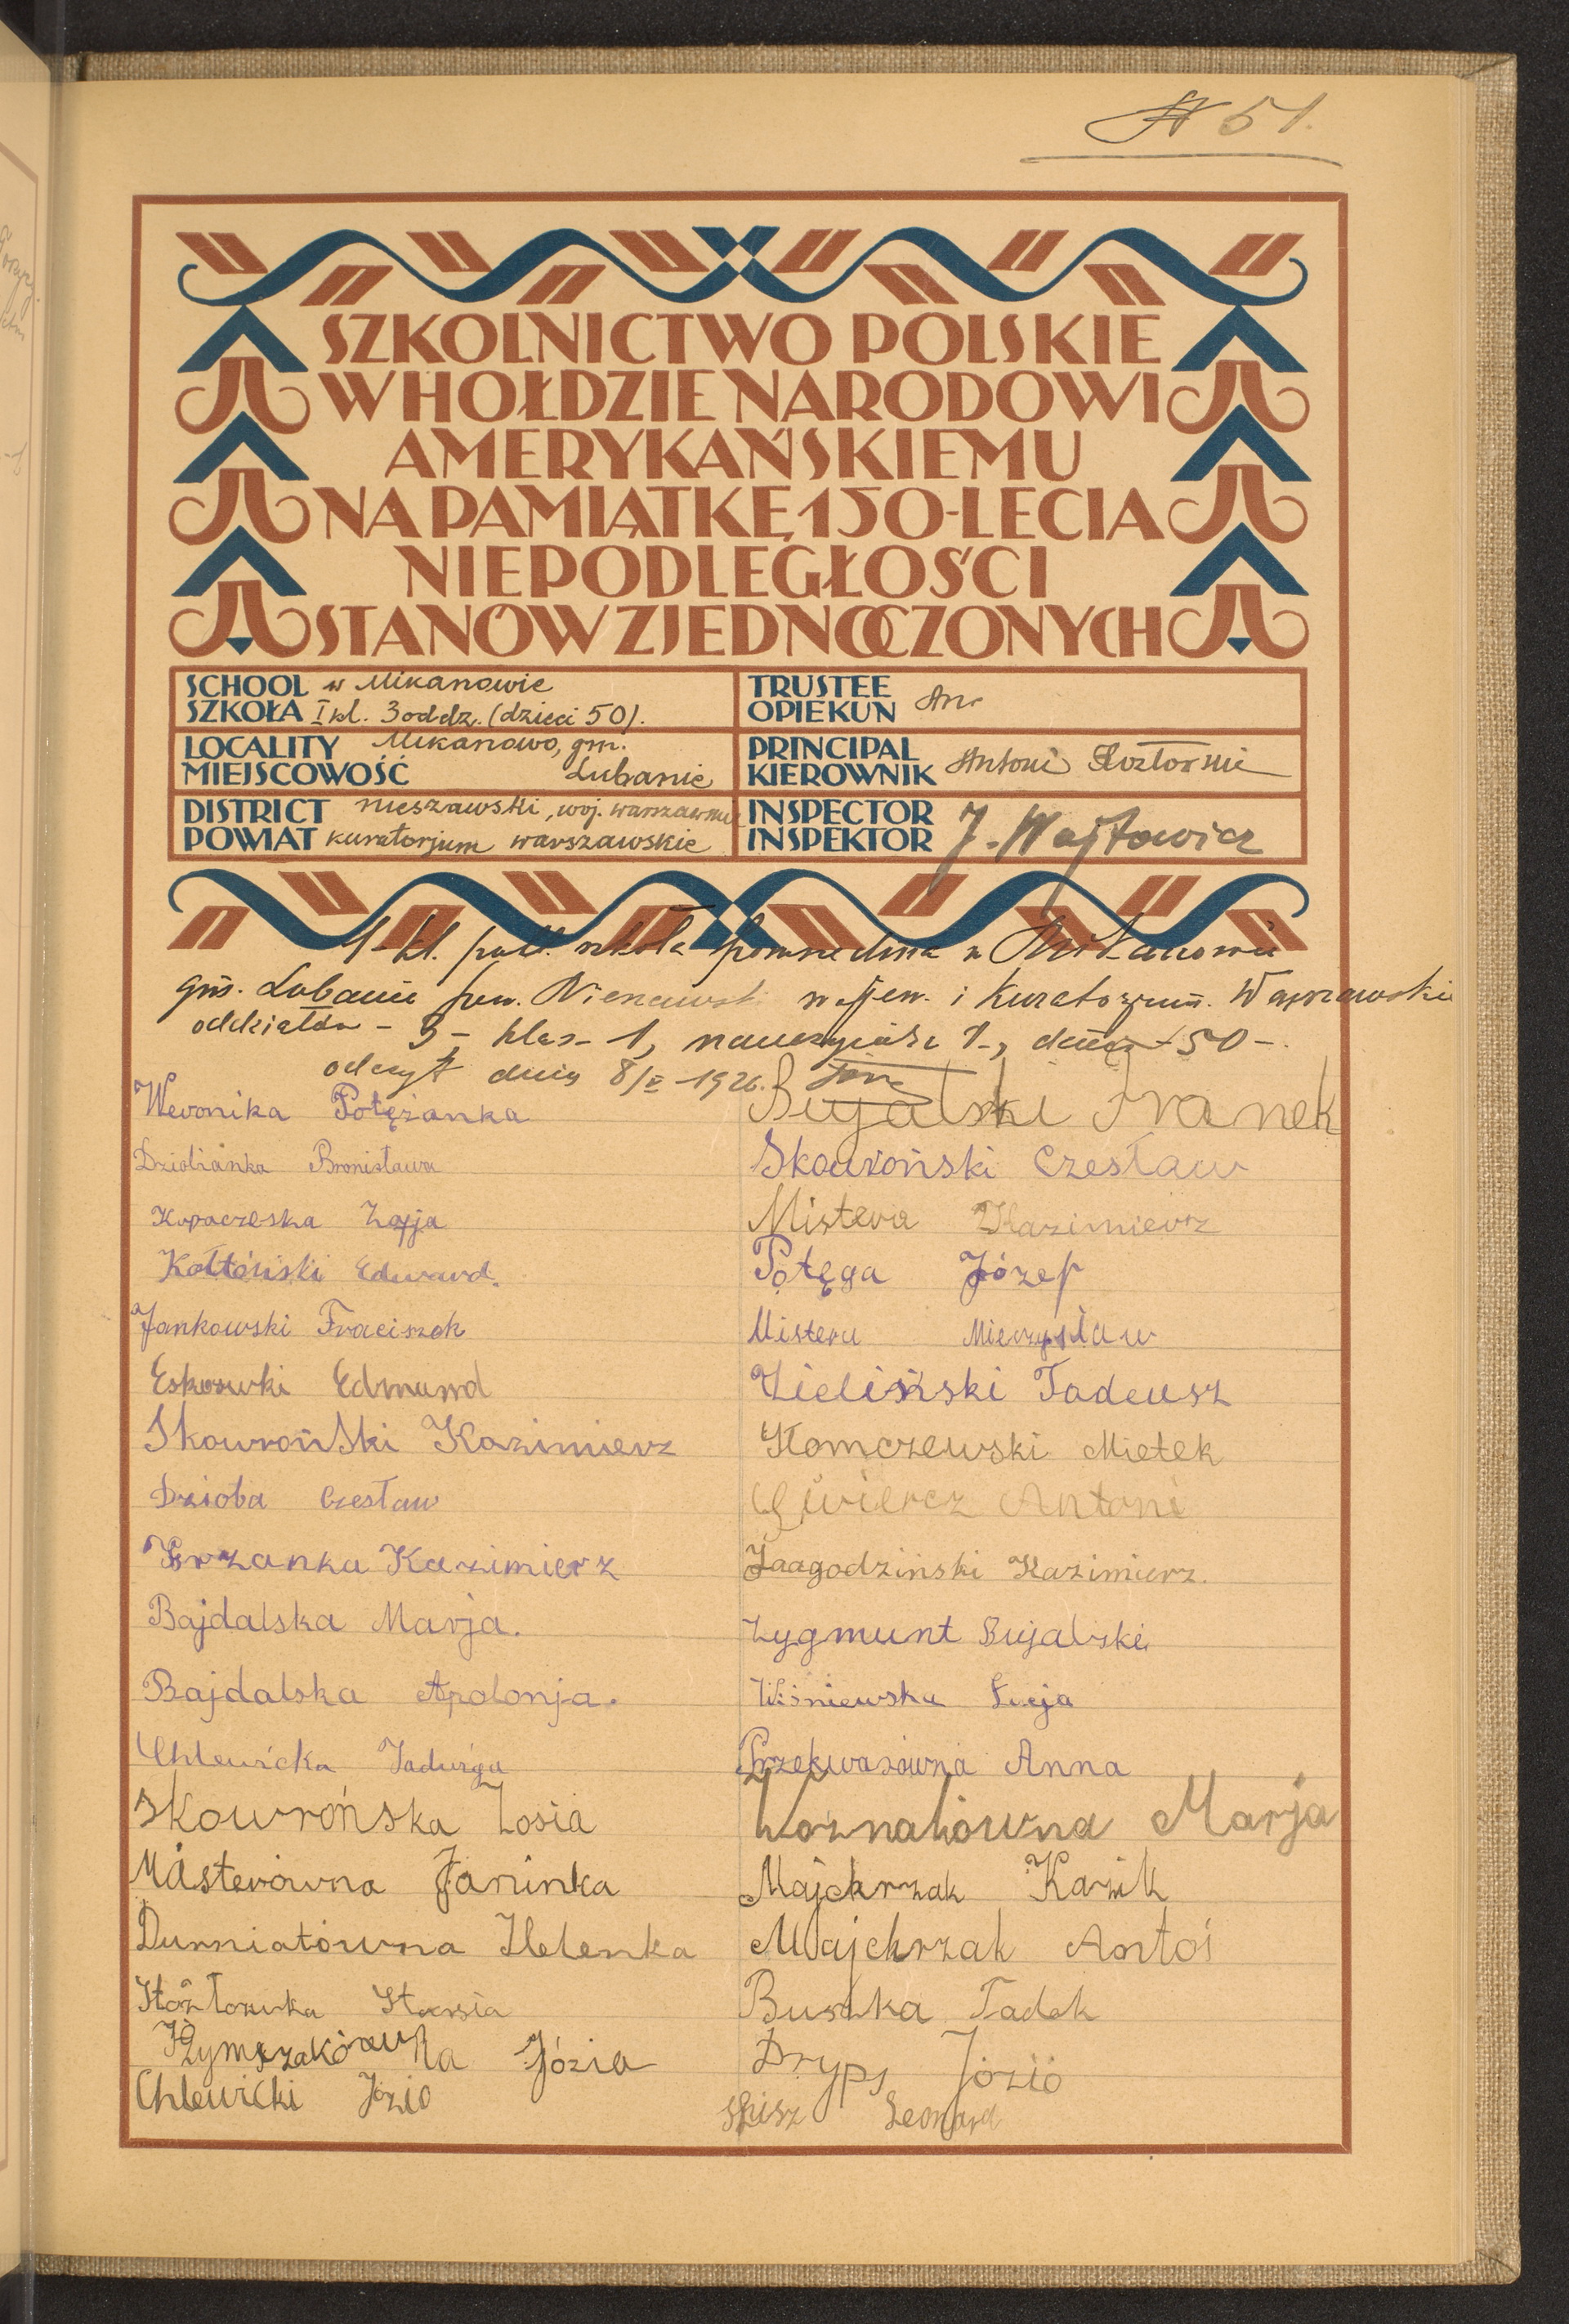 № 51.
SZKOLNICTWO POLSKIE
W HOŁDZIE NARODOWI
AMERYKAŃSKIEMU
NA PAMIĄTKĘ 150-LECIA
NIEPODLEGŁOŚCI
STANÓW ZJEDNOCZONYCH
SCHOOL w Mikanowie
SZKOŁA I kl. 3 oddz. (dzieci 50).
TRUSTEE
OPIEKUN
LOCALITY Mikanowo, gm.
MIEJSCOWOŚĆ Lubanie
PRINCIPAL
KIEROWNIK Antoni
DISTRICT nieszawski, woj. warszawskie
POWIAT kuratorjum warszawskie
INSPECTOR
INSPEKTOR J. Wojtowicz
1-kl. szkoła powszechna w Mikanowie
gm. Lubanie pow. Nieszawski wojew. i Kuratorjum. Warszawskie
oddziałów - 3 - klas - 1, nauczyciel 1-, dzieci - 50 -.
odczyt dnia 8/V - 1926.
Weronika Potężanka
Dziobianka Bronisława
Kopaczeska Zofja
Kołtoński Edward.
Jankowski Fraciszek
Edmund
Skowroński Kazimierz
Dzioba Czesław
Krzanka Kazimierz
Bajdalska Marja.
Bajdalska Apolonja.
Chlewicka Jadwiga
Skowrońska Zosia
Misterówna Janinka
Durniatówna Helenka
Stasia
Józia
Chlewicki Józio
Bujalski Franek
Skowroński Czesław
Mistera Kazimierz
Potęga Józef
Mistera Mieczysław
Zieliński Tadeusz
Komczewski Mietek
Ćwiercz Antoni
Jaagodziński Kazimierz.
Zygmunt Bujalski
Wiśniewska Łucja
Przekwasówna Anna
Woźnakówna Marja
Majchrzak Kazik
Majchrzak Antoś
Buszka Tadek
Dryps Józio
Spisz Leonard